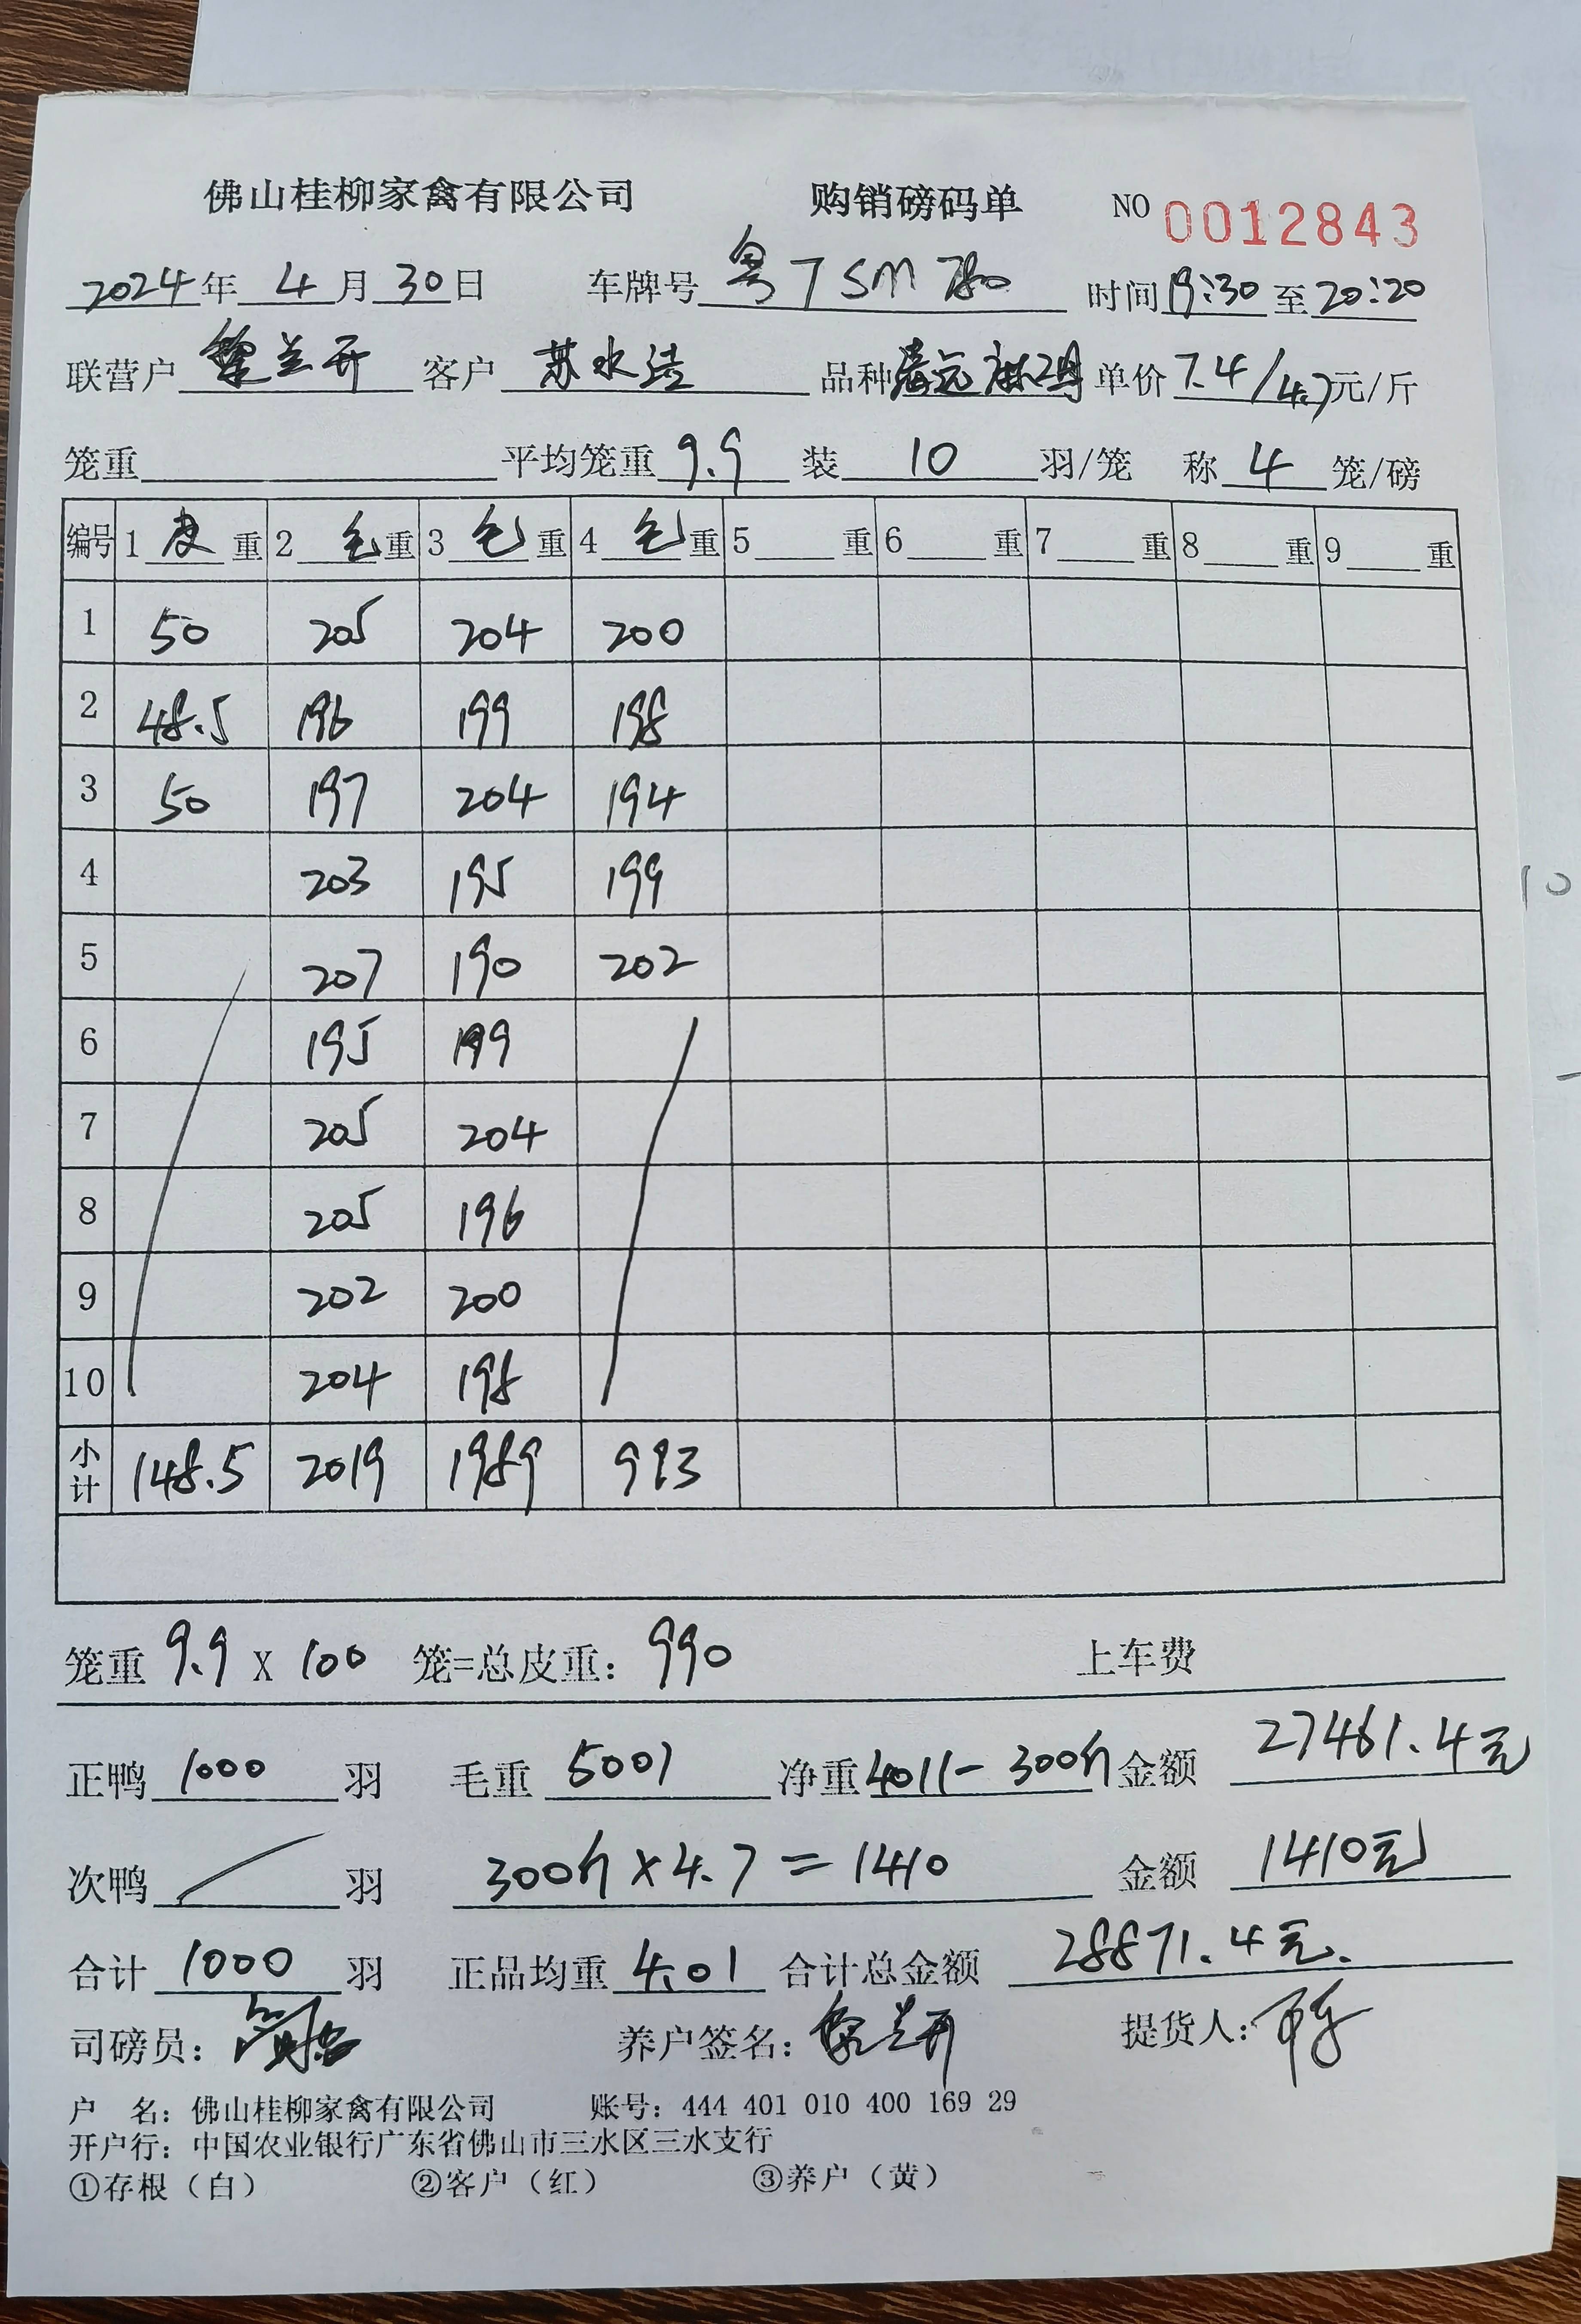 佛山桂柳家禽有限公司 购销磅码单 NO 0012843
2024年 4月 30日 车牌号 粤T 5M 时间 19:30 至 20:20
联营户 黎兰开 客户 苏水 品种 单价 7.4/4.7元/斤
笼重 平均笼重 9.9 装 10 羽/笼 称 4 笼/磅
编号 1 皮 重 2 毛 重 3 毛 重 4 毛 重 5 重 6 重 7 重 8 重 9 重
1 50 205 204 200
2 48.5 196 199 198
3 50 197 204 194
4 203 195 199
5 207 190 202
6 195 199
7 205 204
8 205 196
9 202 200
10 204 198
小计 148.5 2019 1989 993
笼重 9.9 X 100 笼=总皮重: 990 上车费
正鸭 1000 羽 毛重 5001 净重 4011-300斤 金额 27461.4元
次鸭 / 羽 300斤×4.7=1410 金额 1410元
合计 1000 羽 正品均重 4.01 合计总金额 28871.4元.
司磅员: 养户签名: 黎兰开 提货人:
户 名: 佛山桂柳家禽有限公司 账号: 444 401 010 400 169 29
开户行: 中国农业银行广东省佛山市三水区三水支行
①存根（白） ②客户（红） ③养户（黄）
10